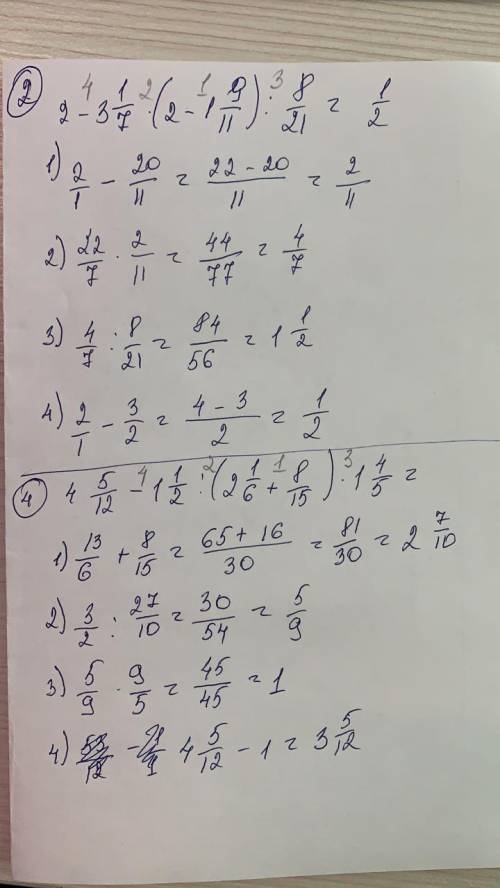 2 2 - 3 1/7 · (2 - 1 9/11) : 8/21 = 1/2
4 2 1 3
1) 2/1 - 20/11 = (22 - 20)/11 = 2/11
2) 22/7 · 2/11 = 44/77 = 4/7
3) 4/7 : 8/21 = 84/56 = 1 1/2
4) 2/1 - 3/2 = (4 - 3)/2 = 1/2
4 4 5/12 - 1 1/2 : (2 1/6 + 8/15) · 1 4/5 =
4 2 1 3
1) 13/6 + 8/15 = (65 + 16)/30 = 81/30 = 2 7/10
2) 3/2 : 27/10 = 30/54 = 5/9
3) 5/9 · 9/5 = 45/45 = 1
4) 4 5/12 - 1 = 3 5/12